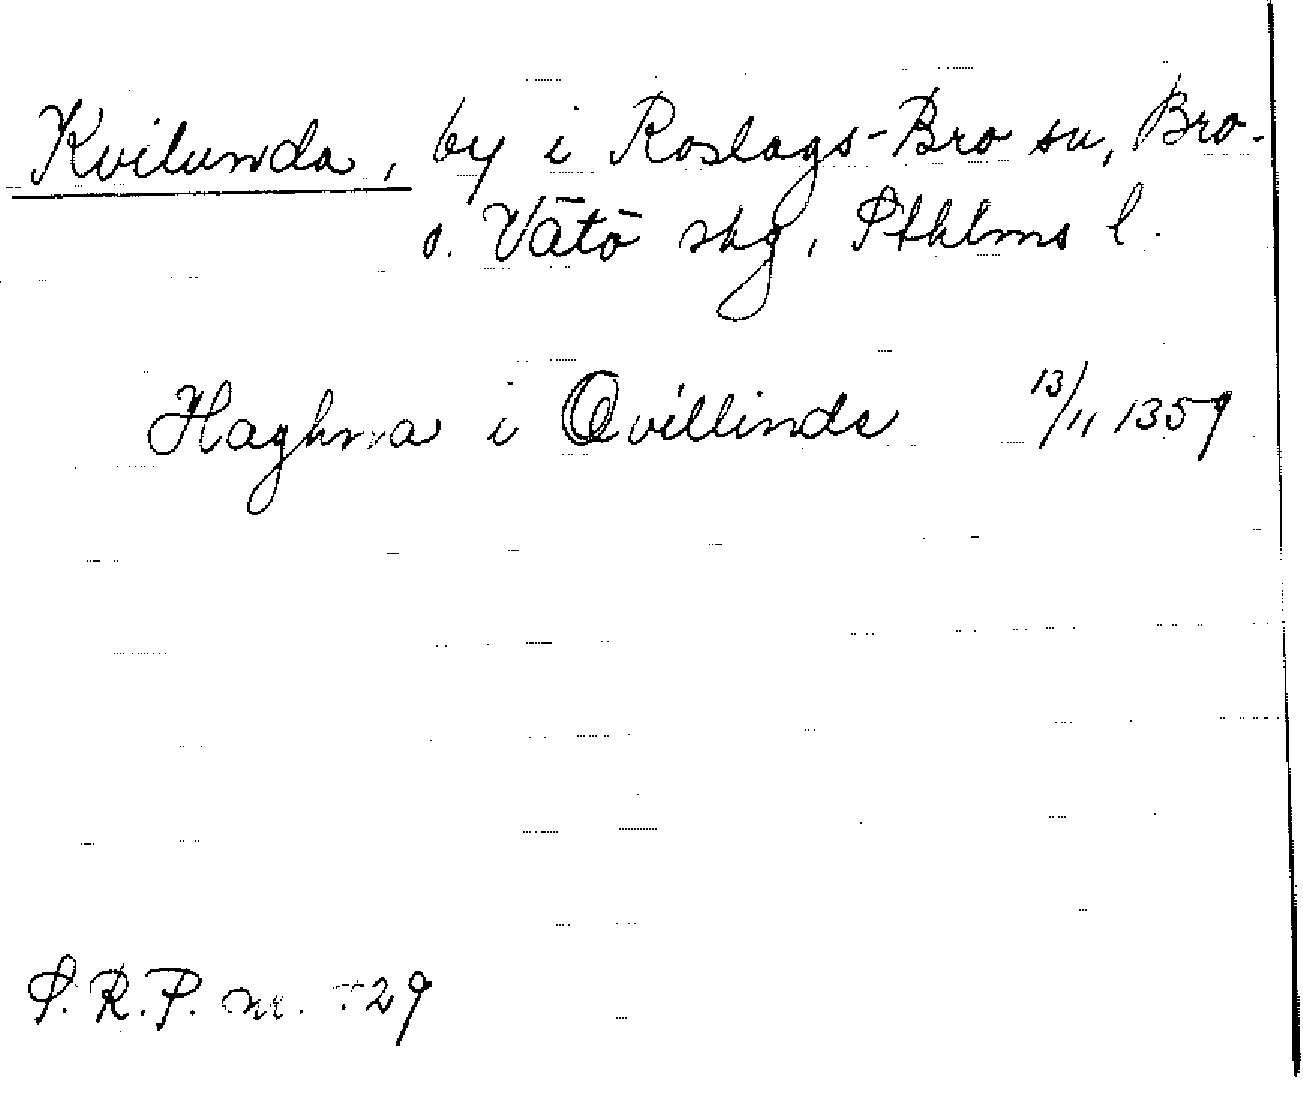 Kvilunda, by i Roslags-Bro sn, Bro-
o. Vätö skg, Sthlms l.
Haghna i Qvillinde 13/11 1359
S.R.P. nr. 29